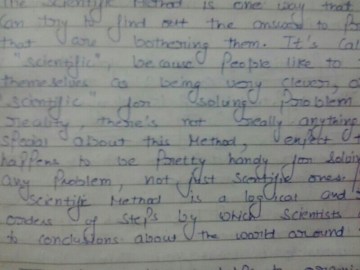 The Scientific Method is one way that
can try to find out the answer to
that are bothering them. It's
"scientific", because People like to
themeselves as being very clever,
"scientific" for solving Problem
reality, there's not really anything
special about this Method, expect
happens to be Pretty handy for
any Problem, not just Scientific ones.
Scientific Method is a logical and
orders of steps by which Scientists
to conclusions about the world around